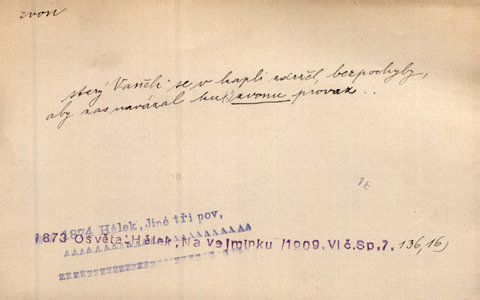 zvon
starý Vašíček se v kapli zdržel, bezpochyby,
aby zas navázal ku zvonu provaz . .
1874 Hálek, Jiné tři pov,
1873 Osvěta: Hálek: Na vejminku /1909. VI č.Sp,7. 136, 16)